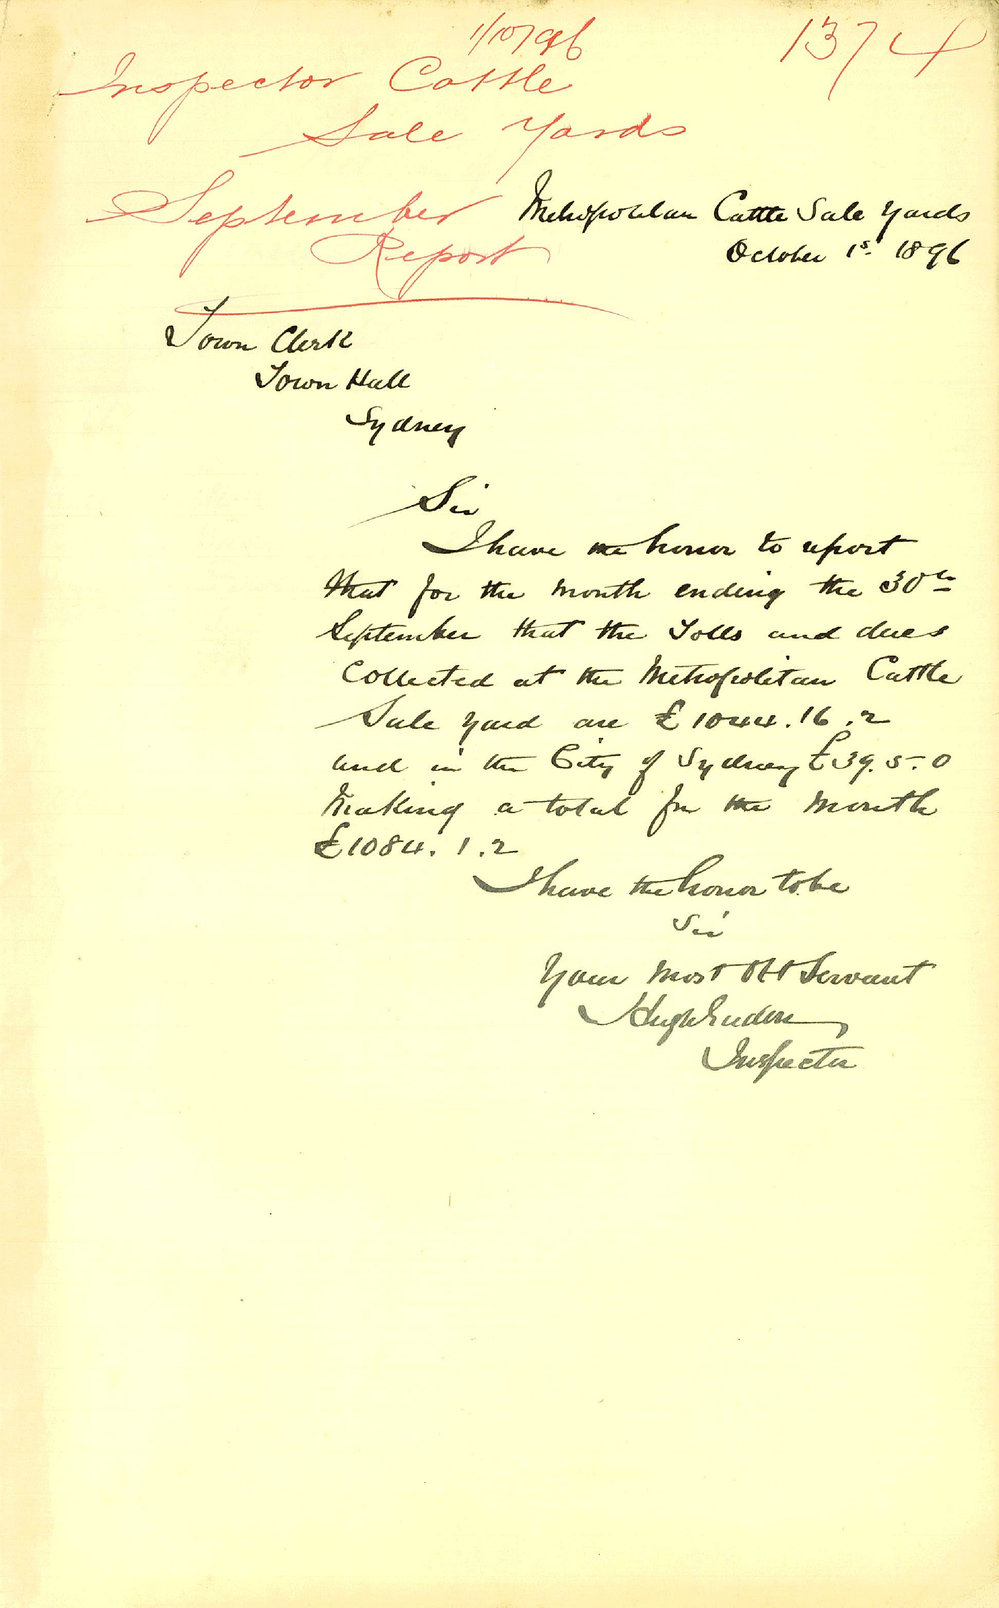 1/10/96
1374
Inspector Cattle
Sale Yards
September
Report
Metropolitan Cattle Sale Yards
October 1st 1896
Town Clerk
Town Hall
Sydney
Sir
I have the honor to report
that for the month ending the 30th
September that the Tolls and dues
Collected at the Metropolitan Cattle
Sale Yard are £1044.16.2
and in the City of Sydney £39.5.0
Making a total for the month
£1084.1.2
I have the honor to be
Sir
Your Most Obt Servant
Hugh
Inspector